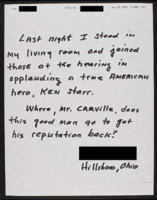 Last night I stood in
my living room and joined
those at the hearing in
applauding a true AMERICAN
hero, KEN Starr.
Where, Mr. CARVILLE, does
this good man go to get
his reputation back?
Hillsboro, Ohio